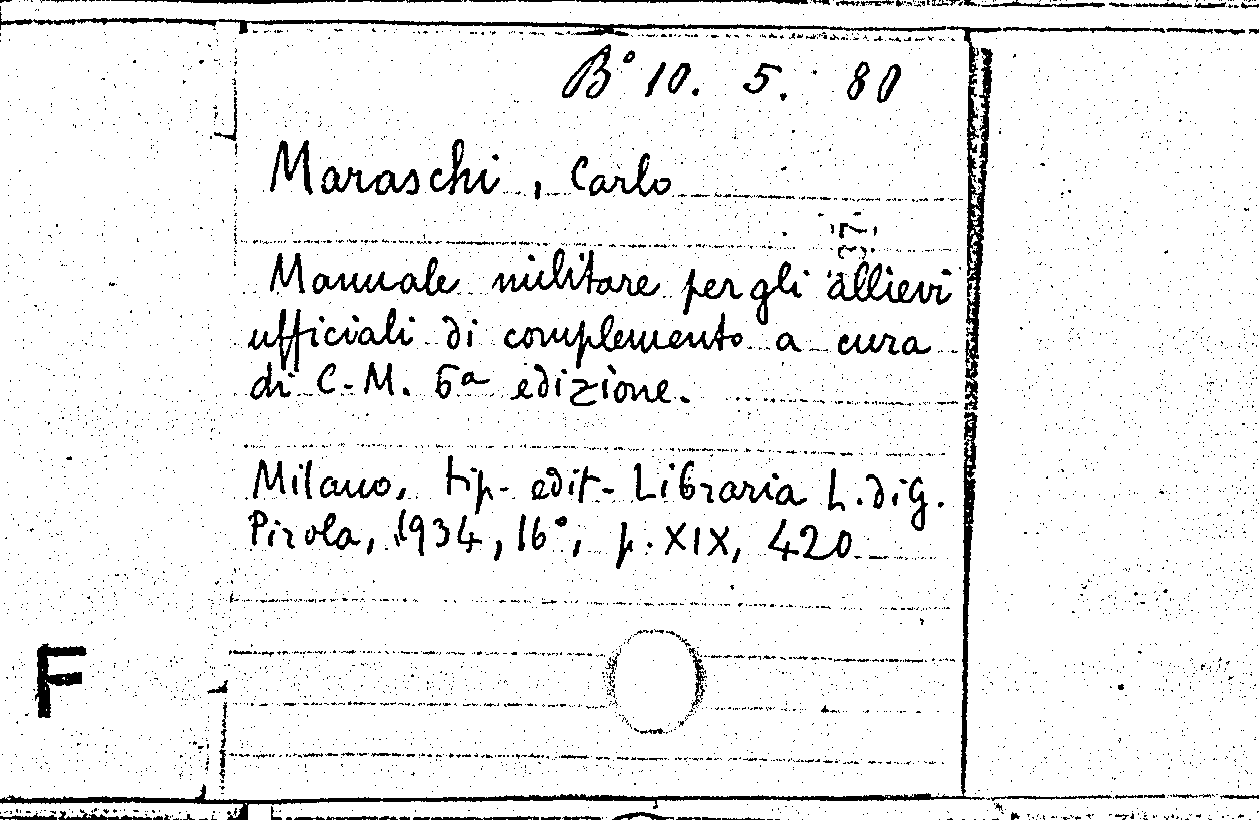 B° 10. 5. 80
Maraschi, Carlo
37
Manuale militare per gli allievi
ufficiali di complemento a cura
di C. M. 6ª edizione.
Milano, tip. edit. Libraria L. di G.
Pirola, 1934, 16°, p. XIX, 420
F